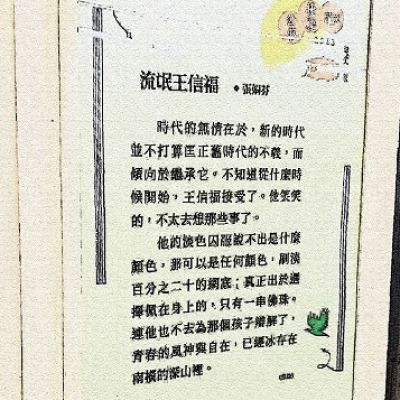 流氓王信福 ●張娟芬
時代的無情在於，新的時代
並不打算匡正舊時代的不義，而
傾向於繼承它。不知道從什麼時
候開始，王信福接受了。他笑笑
的，不太去想那些事了。
他的淺色囚服說不出是什麼
顏色，那可以是任何顏色，刷淡
百分之二十的網底；真正出於選
擇佩在身上的，只有一串佛珠。
連他也不去為那個孩子辯解了，
青春的風神與自在，已經冰存在
南橫的深山裡。
2